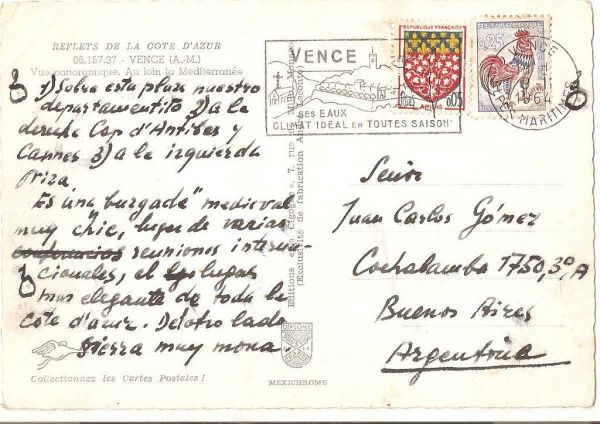 REFLETS DE LA COTE D'AZUR
06.157.37 - VENCE (A.-M.)
Vue panoramique. Au loin la Mediterranée
1) Sobre esta plaza nuestro
departamentito 2) a la
derecha Cap d'Antibes y
Cannes 3) a la izquierda
Niza
Es una "burgade" medieval
muy chic, lugar de varias
conferencias reuniones interna-
cionales, el lugar
mas elegante de toda la
cote d'azur. Del otro lado
sierra muy mona.
Collectionnez les Cartes Postales !
Editions 7, rue
(Exclusivité de fabrication
DIPLOME
MEXICHROME
VENCE
SES EAUX
CLIMAT IDEAL EN TOUTES SAISONS
REPUBLIQUE FRANÇAISE
0,05
AMIENS
0,25
VENCE
1964
ALPES MARITIMES
Señor
Juan Carlos Gómez
Cochabamba 1750, 3º, A
Buenos Aires
Argentina